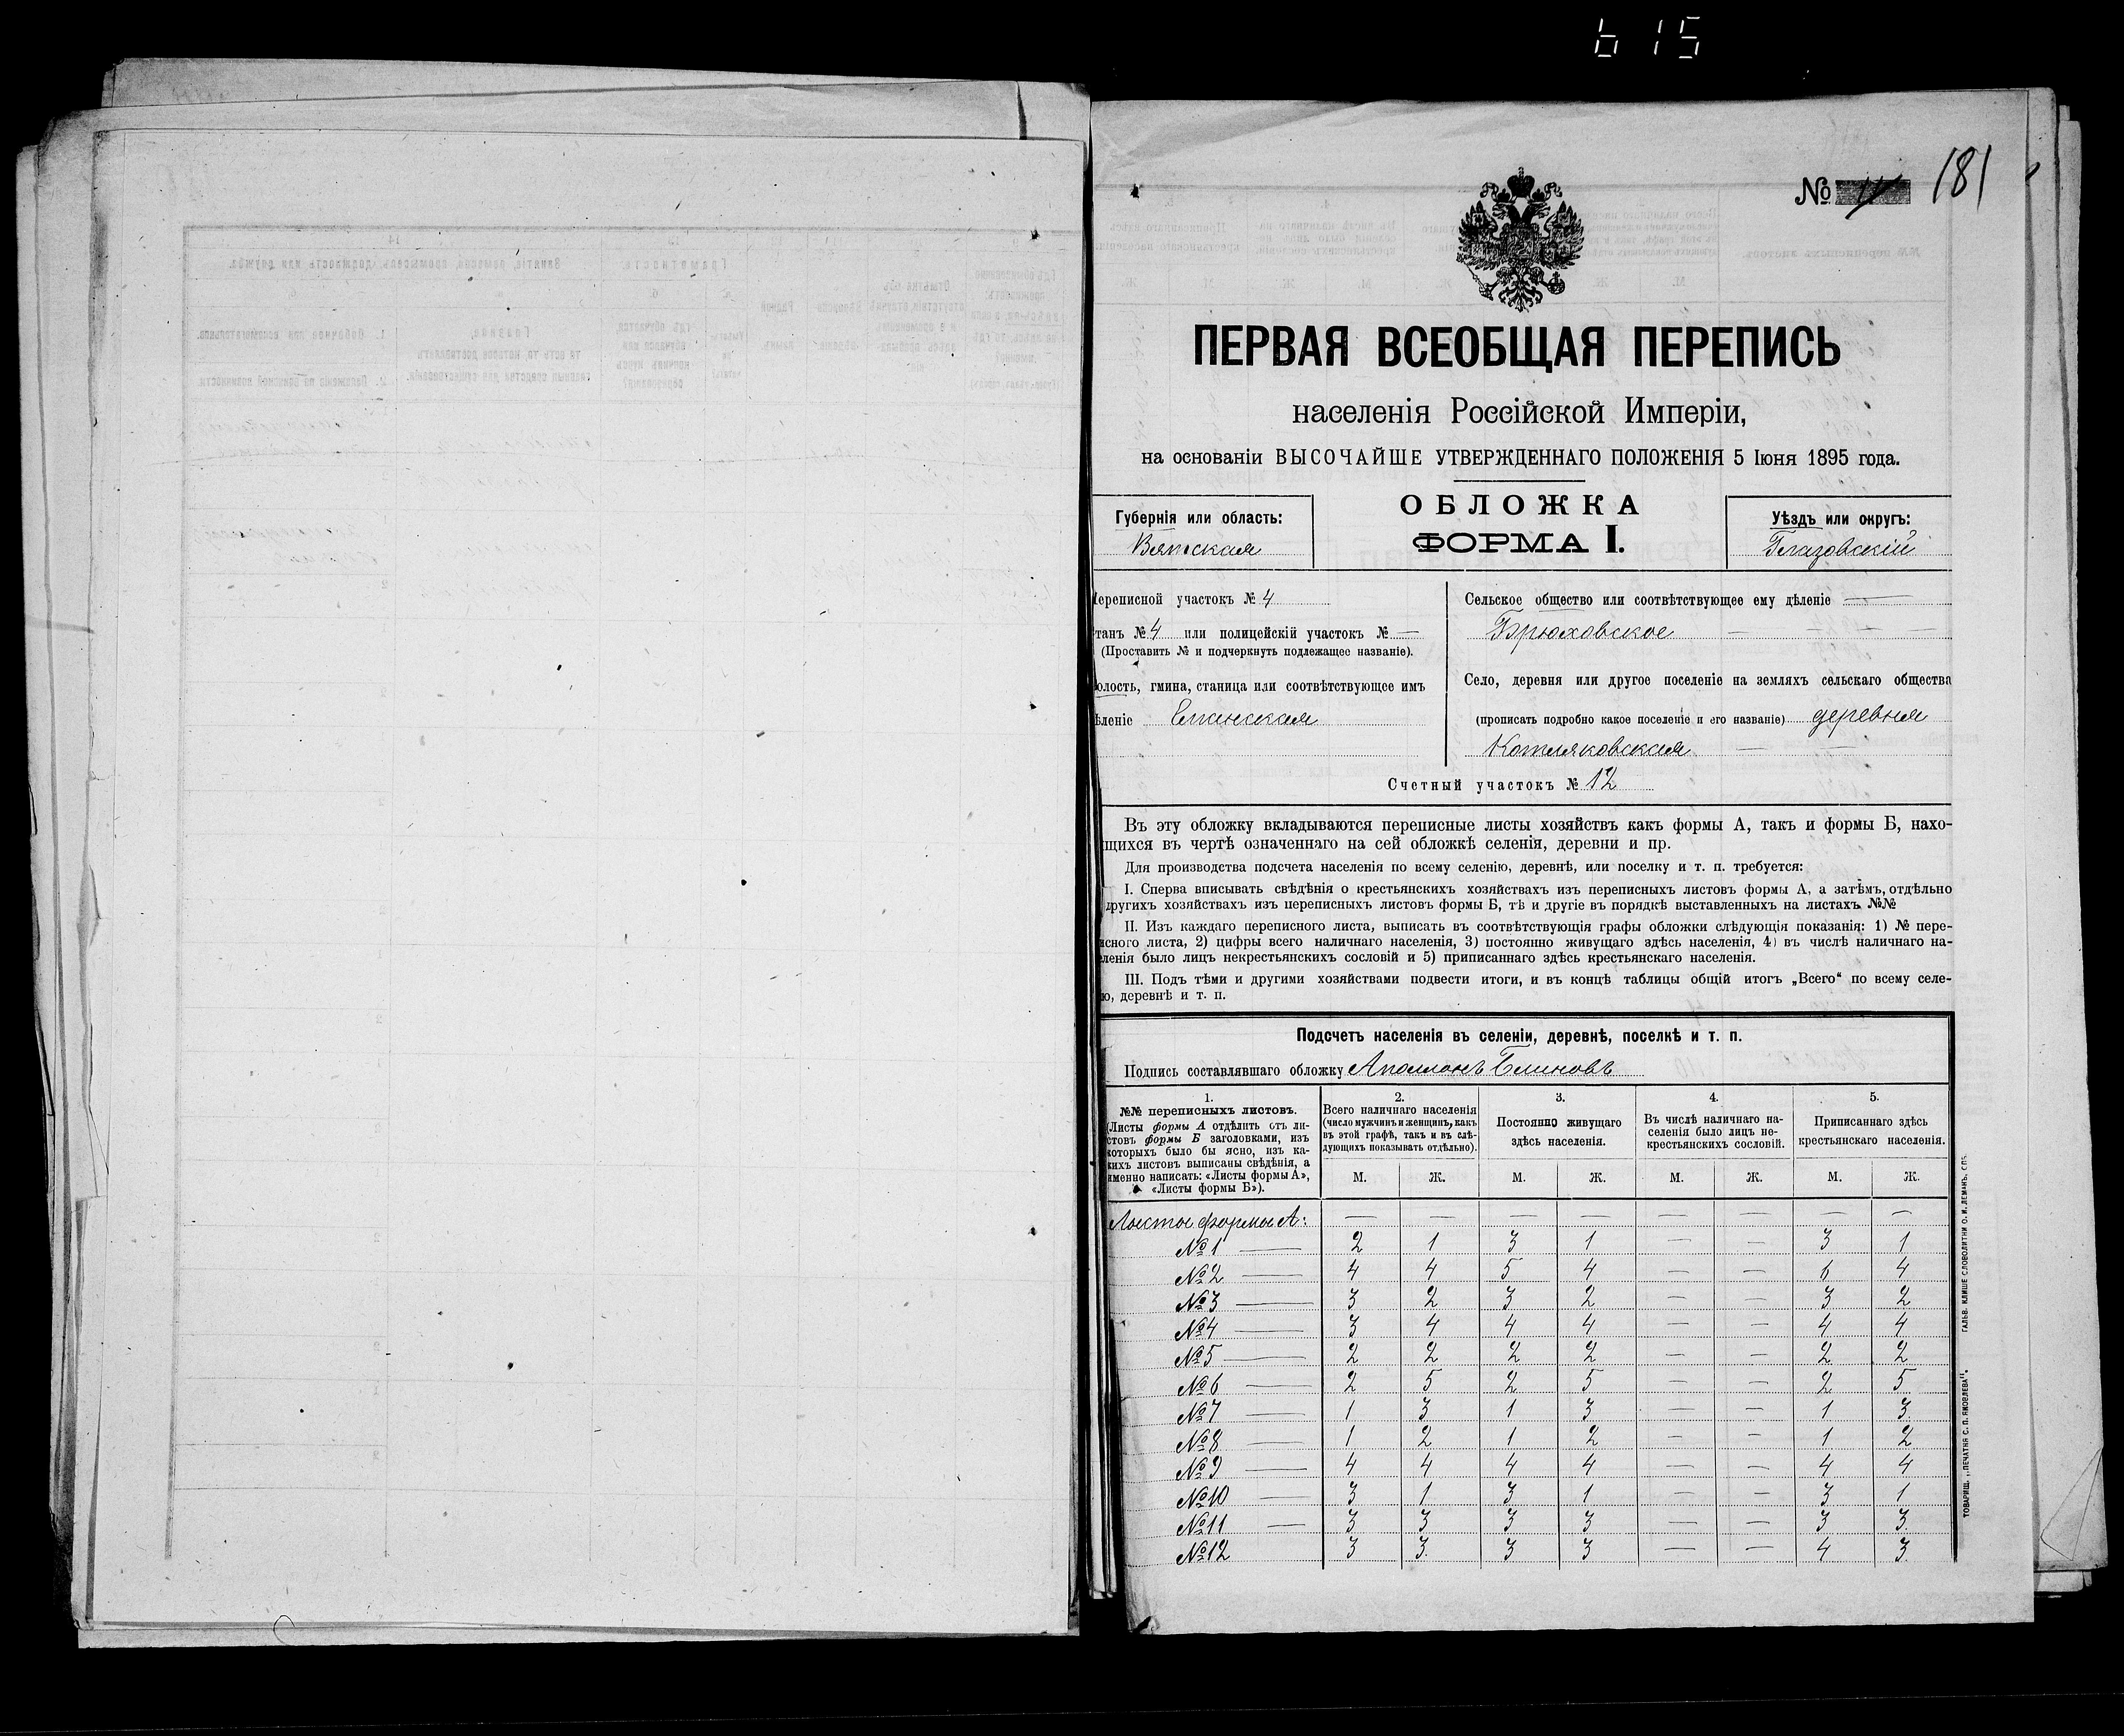 615
№ 181
ПЕРВАЯ ВСЕОБЩАЯ ПЕРЕПИСЬ
населенія Россійской Имперіи,
на основаніи ВЫСОЧАЙШЕ УТВЕРЖДЕННАГО ПОЛОЖЕНІЯ 5 Іюня 1895 года.
ОБЛОЖКА
ФОРМА I.
Губернія или область:
Вятская
Уѣздъ или округъ:
Глазовскій
Переписной участокъ № 4
Станъ № 4 или полицейскій участокъ № —
(Проставить № и подчеркнуть подлежащее названіе).
Волость, гмина, станица или соотвѣтствующее имъ
дѣленіе
Сельское общество или соотвѣтствующее ему дѣленіе —
Брюховское — — — —
Село, деревня или другое поселеніе на земляхъ сельскаго общества
(прописать подробно какое поселеніе и его названіе) деревня
Котляковская — —
Счетный участокъ № 12
Въ эту обложку вкладываются переписные листы хозяйствъ какъ формы А, такъ и формы Б, нахо-
щихся въ чертѣ означеннаго на сей обложкѣ селенія, деревни и пр.
Для производства подсчета населенія по всему селенію, деревнѣ, или поселку и т. п. требуется:
I. Сперва вписывать свѣдѣнія о крестьянскихъ хозяйствахъ изъ переписныхъ листовъ формы А, а затѣмъ, отдѣльно
другихъ хозяйствахъ изъ переписныхъ листовъ формы Б, тѣ и другіе въ порядкѣ выставленныхъ на листахъ №№
II. Изъ каждаго переписного листа, выписать въ соотвѣтствующія графы обложки слѣдующія показанія: 1) № пере-
исного листа, 2) цифры всего наличнаго населенія, 3) постоянно живущаго здѣсь населенія, 4) въ числѣ наличнаго на-
ленія было лицъ некрестьянскихъ сословій и 5) приписаннаго здѣсь крестьянскаго населенія.
III. Подъ тѣми и другими хозяйствами подвести итоги, и въ концѣ таблицы общій итогъ „Всего“ по всему селе-
ю, деревнѣ и т. п.
Подсчетъ населенія въ селеніи, деревнѣ, поселкѣ и т. п.
Подпись составлявшаго обложку Аполлонъ Блиновъ
1.
№№ переписныхъ листовъ.
(Листы формы А отдѣлить отъ ли-
стовъ формы Б заголовками, изъ
которыхъ было бы ясно, изъ ка-
кихъ листовъ выписаны свѣдѣнія, а
именно написать: «Листы формы А»,
«Листы формы Б»).
2.
Всего наличнаго населенія
(число мужчинъ и женщинъ, какъ
въ этой графѣ, такъ и въ слѣ-
дующихъ показывать отдѣльно).
3.
Постоянно живущаго
здѣсь населенія.
4.
Въ числѣ наличнаго на-
селенія было лицъ не-
крестьянскихъ сословій.
5.
Приписаннаго здѣсь
крестьянскаго населенія.
М. Ж. М. Ж. М. Ж. М. Ж.
Листы формы А: — — — — — — — —
№ 1 — 2 1 3 1 — — 3 1
№ 2 — 4 4 5 4 — — 6 4
№ 3 — 3 2 3 2 — — 3 2
№ 4 — 3 4 4 4 — — 4 4
№ 5 — 2 2 2 2 — — 2 2
№ 6 — 2 5 2 5 — — 2 5
№ 7 — 1 3 1 3 — — 1 3
№ 8 — 1 2 1 2 — — 1 2
№ 9 — 4 4 4 4 — — 4 4
№ 10 — 3 1 3 1 — — 3 1
№ 11 — 3 3 3 3 — — 3 3
№ 12 3 3 3 3 — — 4 3
ГАЛЬВ. КЛИШЕ СЛОВОЛИТНИ О. И. ЛЕМАНЪ, СПБ.
ТОВАРИЩ. „ПЕЧАТНЯ С. П. ЯКОВЛЕВА“.